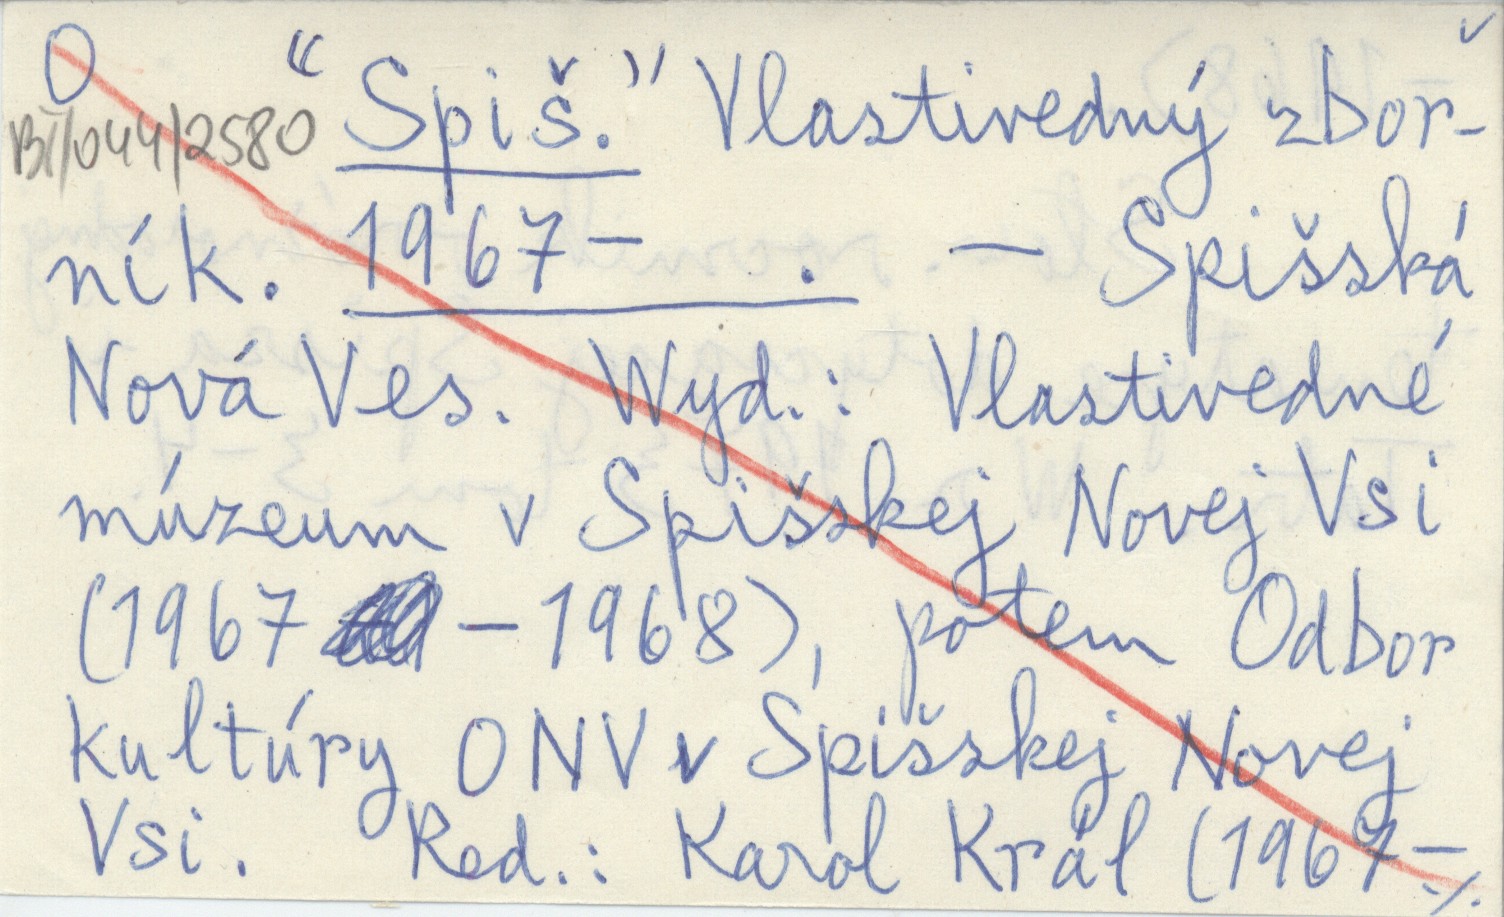 O "Spiš." Vlastivedný zbor-
BI/044/2580
ník. 1967- . — Spišská
Nová Ves. Wyd.: Vlastivedné
múzeum v Spišskej Novej Vsi
(1967 - 1968), potem Odbor
kultúry ONV v Spišskej Novej
Vsi. Red.: Karol Král (1967-
./.